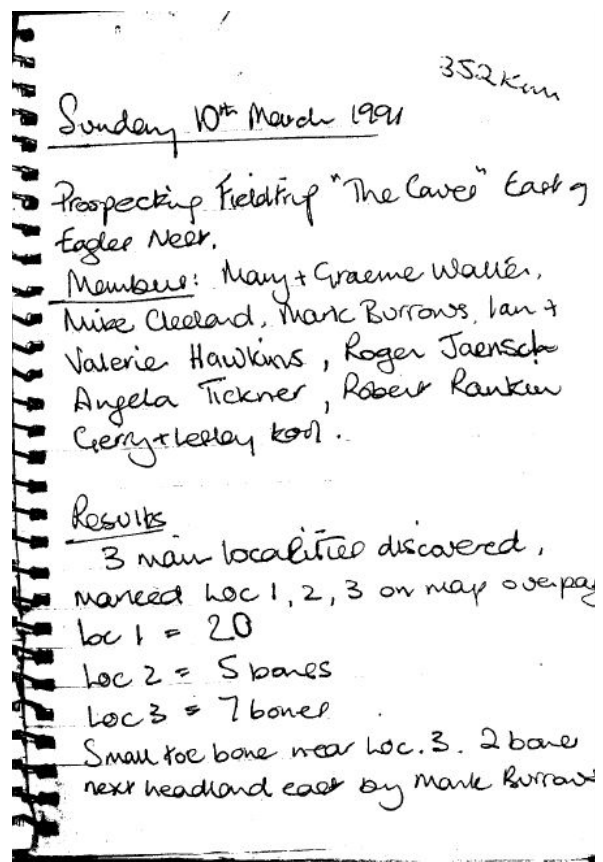 352 Km
Sunday 10th March 1991
Prospecting Fieldtrip "The Caves" East of
Eagles Nest.
Members: Mary + Graeme Walker,
Mike Cleeland, Mark Burrows, Ian +
Valerie Hawkins, Roger Jaensch
Angela Tickner, Robert Rankin
Gerry + Lesley Kool.
Results
3 main localities discovered,
marked Loc 1, 2, 3 on map overpag
Loc 1 = 20
Loc 2 = 5 bones
Loc 3 = 7 bones.
Small toe bone near Loc. 3. 2 bone
next headland east by Mark Burrows